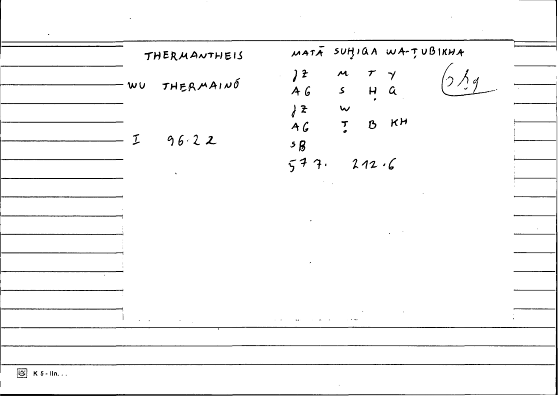 THERMANTHEIS MATĀ SUḤIQA WA-ṬUBIKHA
JZ M T Y
WU THERMAINŌ AG S Ḥ Q
JZ W
AG Ṭ B KH
I 96.22 SB
577. 212.6
K 5 - IIn. . .